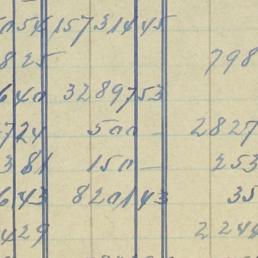 054 15731445
825 798
640 3289753
724 500 — 2827
381 150 — 253
643 820143 35
429 2244